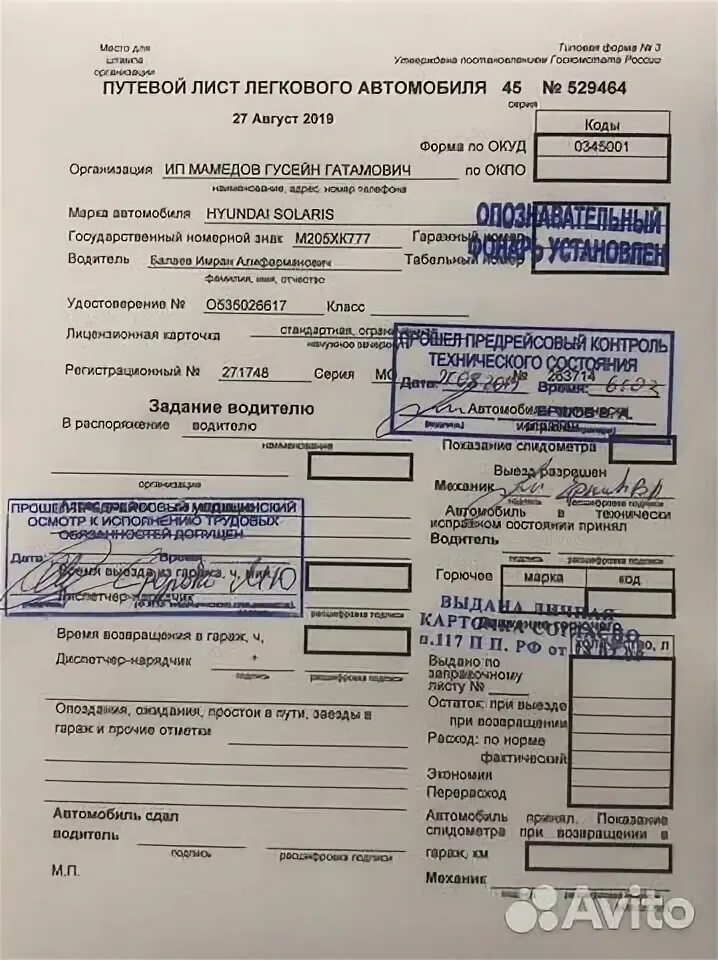 Место для
штампа
организации
Типовая форма № 3
Утверждена постановлением Госкомстата России
ПУТЕВОЙ ЛИСТ ЛЕГКОВОГО АВТОМОБИЛЯ 45 № 529464
серия
27 Август 2019
Коды
Форма по ОКУД 0345001
Организация ИП МАМЕДОВ ГУСЕЙН ГАТАМОВИЧ по ОКПО
наименование, адрес, номер телефона
Марка автомобиля HYUNDAI SOLARIS
ОПОЗНАВАТЕЛЬНЫЙ
ФОНАРЬ УСТАНОВЛЕН
Государственный номерной знак М205ХК777 Гаражный номер
Водитель Балаев Имран Табельный номер
фамилия, имя, отчество
Удостоверение № О536026617 Класс
Лицензионная карточка стандартная,
ненужное
Регистрационный № 271748 Серия МО № 263714
ПРОШЕЛ ПРЕДРЕЙСОВЫЙ КОНТРОЛЬ
ТЕХНИЧЕСКОГО СОСТОЯНИЯ
Дата: Время:
Автомобиль
исправен
Задание водителю
В распоряжение водителю
наименование
организация
Показание спидометра
Выезд разрешен
Механик
подпись расшифровка подписи
Автомобиль в технически
исправном состоянии принял
Водитель
подпись расшифровка подписи
ПРОШЕЛ ПРЕДРЕЙСОВЫЙ МЕДИЦИНСКИЙ
ОСМОТР К ИСПОЛНЕНИЮ ТРУДОВЫХ
ОБЯЗАННОСТЕЙ ДОПУЩЕН
Дата: Время
Время выезда из гаража, ч, мин
Диспетчер-нарядчик
расшифровка подписи
Горючее марка код
ВЫДАНА ЛИЧНАЯ
КАРТОЧКА СОГЛАСНО
п.117 П П. РФ от
Движение горючего
количество, л
Время возвращения в гараж, ч,
Диспетчер-нарядчик
подпись расшифровка подписи
Выдано по
заправочному
листу №
Остаток: при выезде
при возвращении
Расход: по норме
фактический
Экономия
Перерасход
Опоздания, ожидания, простои в пути, заезды в
гараж и прочие отметки
Автомобиль сдал
водитель
подпись расшифровка подписи
М.П.
Автомобиль принял. Показание
спидометра при возвращении в
гараж, км
Механик
Avito